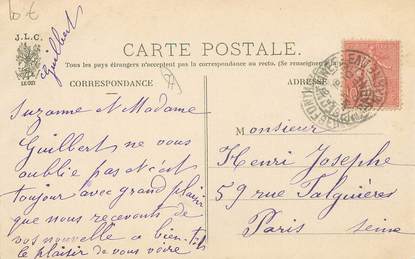 10 €
J.L.C.
Guilbert
CARTE POSTALE.
Tous les pays étrangers n'acceptent pas la correspondance au recto. (Se renseigner à la
CORRESPONDANCE
ADRESSE
Suzanne et Madame
Guilbert ne vous
oublie pas et c'est
toujour avec grand plaisir
que nous recevont de
vos nouvelle a bien-tot
le plaisir de vous voire
Monsieur
Henri Josephe
59 rue Falguières
Paris Seine